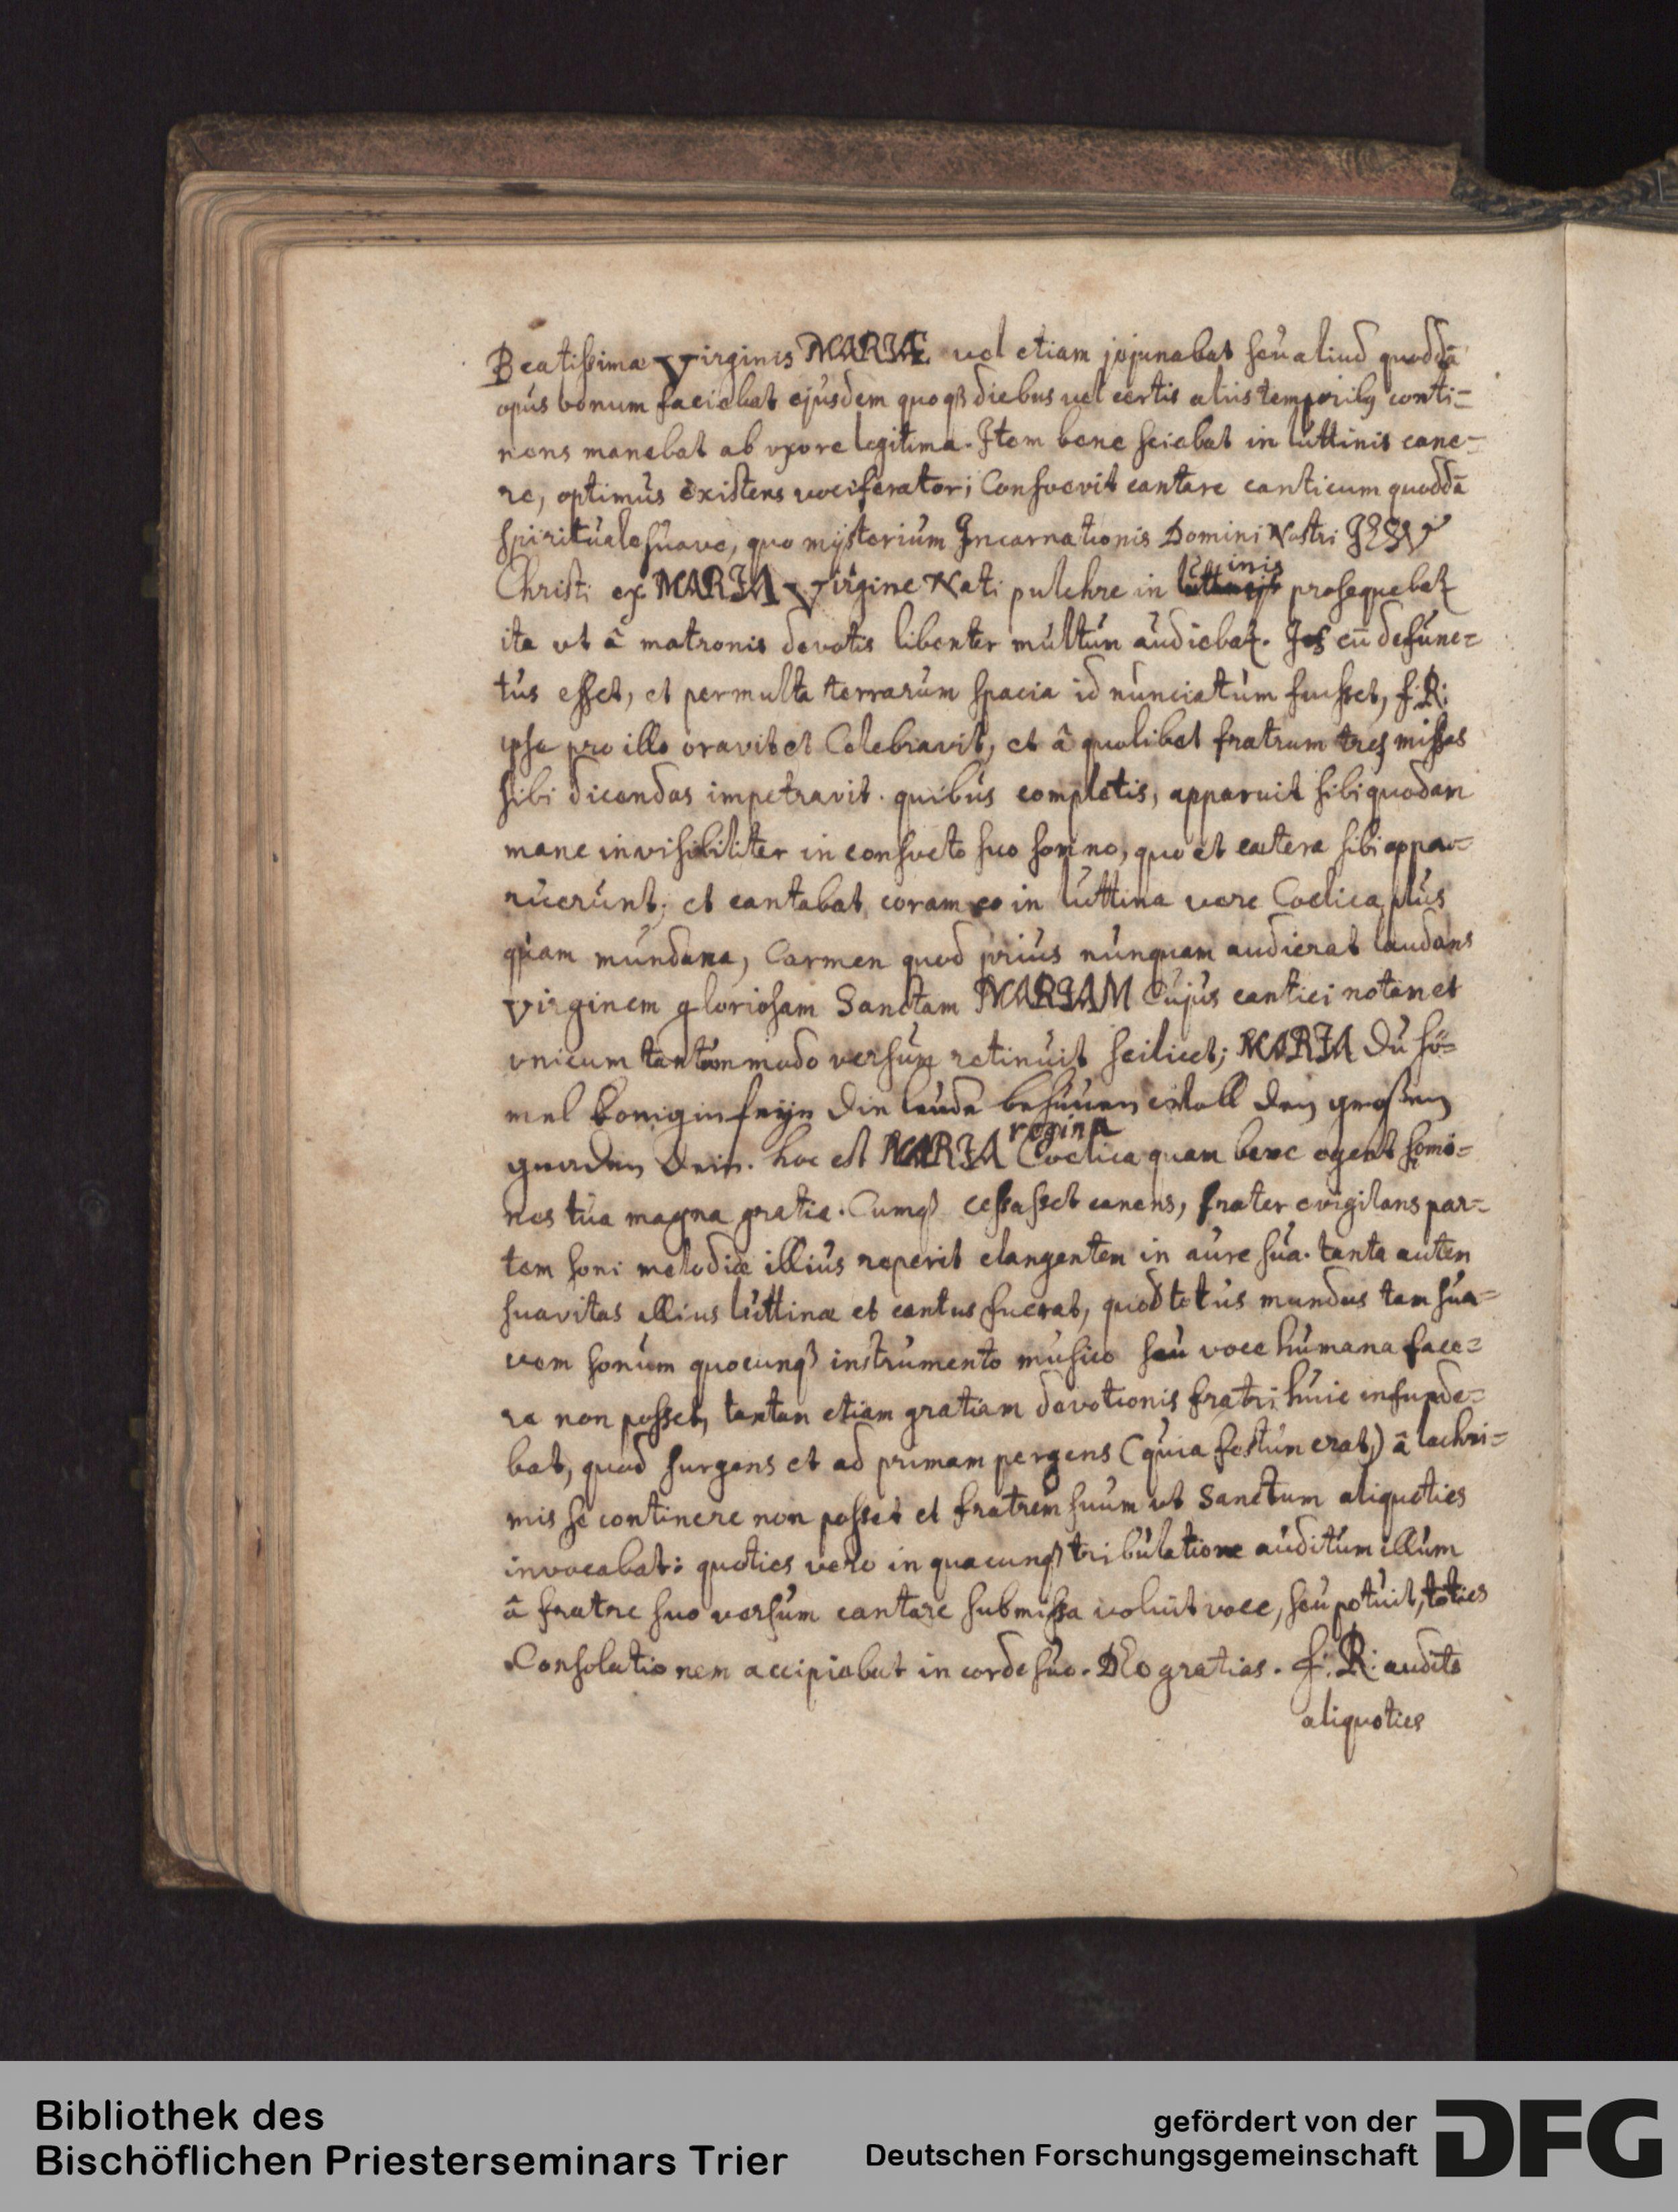 Beatissimæ Virginis MARIÆ vel etiam jejunabat seu aliud quoddā
opus bonum faciebat ejusdem quoqꝫ diebus vel certis aliis temporibꝰ conti=
nens manebat ab vxore legitima. Item bene sciebat in luttinis cane=
re, optimus existens vociferator; Consvevit cantare canticum quoddā
spirituale suave, quo mysterium Incarnationis Domini Nostri IESV
Christi ex MARIA Virgine Nati pulchre in inis prosequebat~
ita vt â matronis devotis libenter multum audiebat~. Is cū defunc=
tus esset, et per multa terrarum spacia id nunciatum fuisset, f: R:
ipse pro illo oravit et Celebravit, et â quolibet fratrum tres missas
sibi dicendas impetravit. quibus completis, apparuit sibi quodam
mane invisibiliter in consveto suo somno, quo et cætera sibi appa=
ruerunt; et cantabat coram eo in luttina vere Coelica plus
quam mundana, Carmen quod prius nunquam audierat laudans
Virginem gloriosam Sanctam MARIAM Cujus cantici notam et
vnicum tantummodo versum retinuit scilicet; MARIA du hö=
mel Konigin feyn die leude den großen
gnaden dein. hoc est MARIA regina Coelica quam bene egent homi=
nes tua magna gratia. Cumqꝫ cessasset canens, frater evigilans par=
tem soni melodiæ illius reperit clangentem in aure sua. tanta autem
suavitas illius luttinæ et cantus fuerat, quod totus mundus tam sua=
vem sonum quocunqꝫ instrumento musico seu voce humana face=
re non posset, tantam etiam gratiam devotionis fratri huic infunde=
bat, quod surgens et ad primam pergens (quia festum erat,) â lachri=
mis se continere non posset et fratrem suum vt Sanctum aliquoties
invocabat: quoties vero in quacunqꝫ tribulatione auditum illum
â fratre suo versum cantare submissa voluit voce, seu potuit, toties
Consolationem accipiebat in corde suo. DEo gratias. f: R: audito
aliquoties
Bibliothek des
Bischöflichen Priesterseminars Trier
gefördert von der
Deutschen Forschungsgemeinschaft
DFG